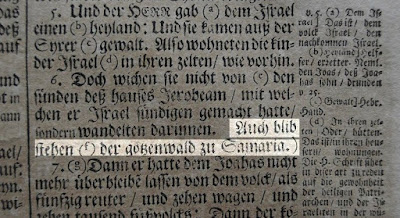 5. Und der HERR gab (a) dem Jsrael
einen (b) heyland: Und sie kamen auß der
Syrer (c) gewalt. Also wohneten die kin-
der Jsrael (d) in ihren zelten/ wie vorhin.
6. Doch wichen sie nicht von (e) den
sünden deß hauses Jerobeam / mit wel-
chen er Jsrael sündigen gemacht hatte/
sondern wandelten darinnen. Auch blib
stehen (f) der götzenwald zu Samaria.)
7. (g) Dann er hatte dem Joahas nicht
mehr über bleibē lassen von dem volck/ als
fünfzig reuter / und zehen wagen / und
zehen tausend fußvolcks: Dann der
v. 5. (a) Dem Js-
rael] Das ist / dem
volck Jsrael / den
nachkommen Jsrael.
(b) heyland.] Hel-
fer/ Neml.
den Joas/ deß Joa-
has sohn / drunden
v. 25.
(c) Gewalt] Hebr.
Hand.
(d) In ihren zel-
ten] Oder/ hütten.
Das ist/ in ihren
wohnungen.
Die H. Schrift
in diser art zu reden
auf die gewohnheit
der heiligen Patriar-
chen / und der